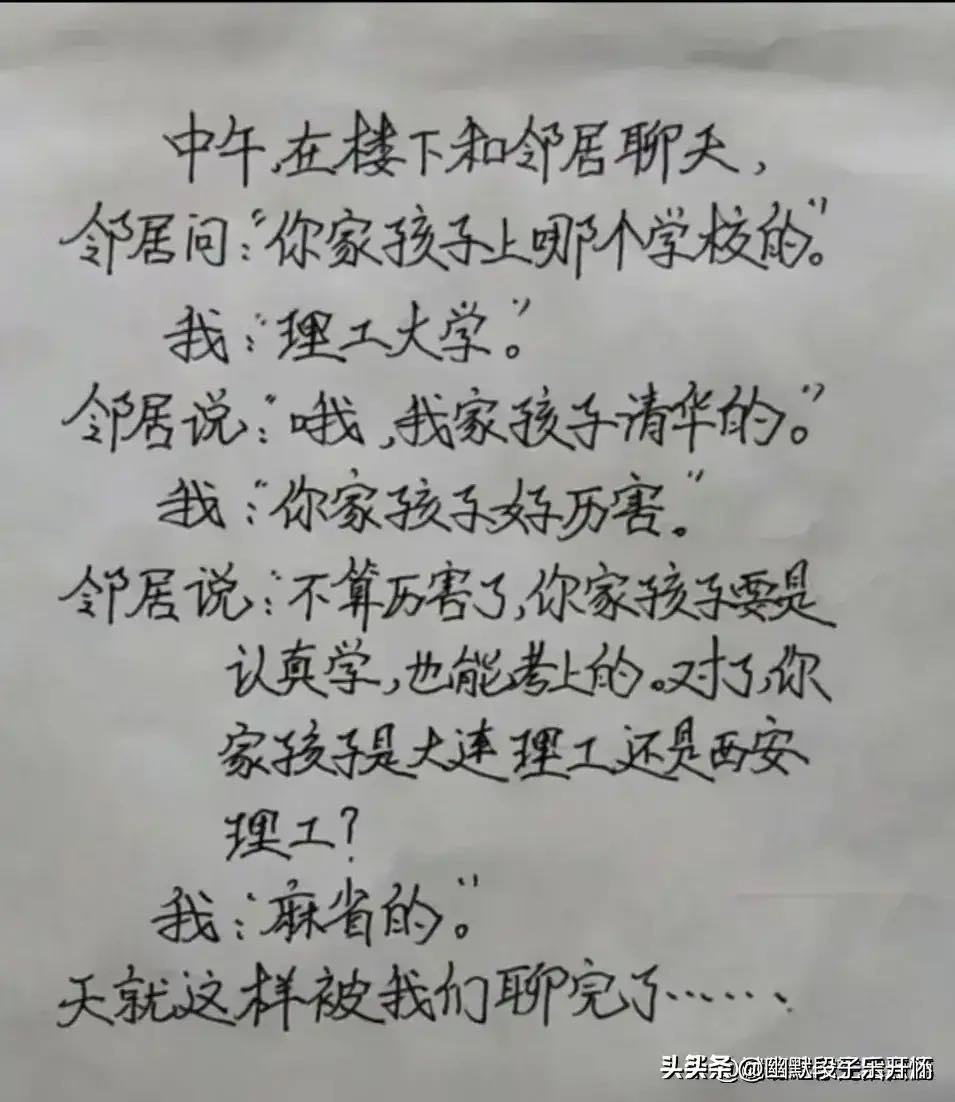 中午,在楼下和邻居聊天,
邻居问:“你家孩子上哪个学校的。”
我:“理工大学。”
邻居说:“哦,我家孩子清华的。”
我:“你家孩子好厉害。”
邻居说:“不算厉害了,你家孩子要是
认真学,也能考上的。对了,你
家孩子是大连理工还是西安
理工?
我:“麻省的。”
天就这样被我们聊完了……
头条@幽默段子乐开怀